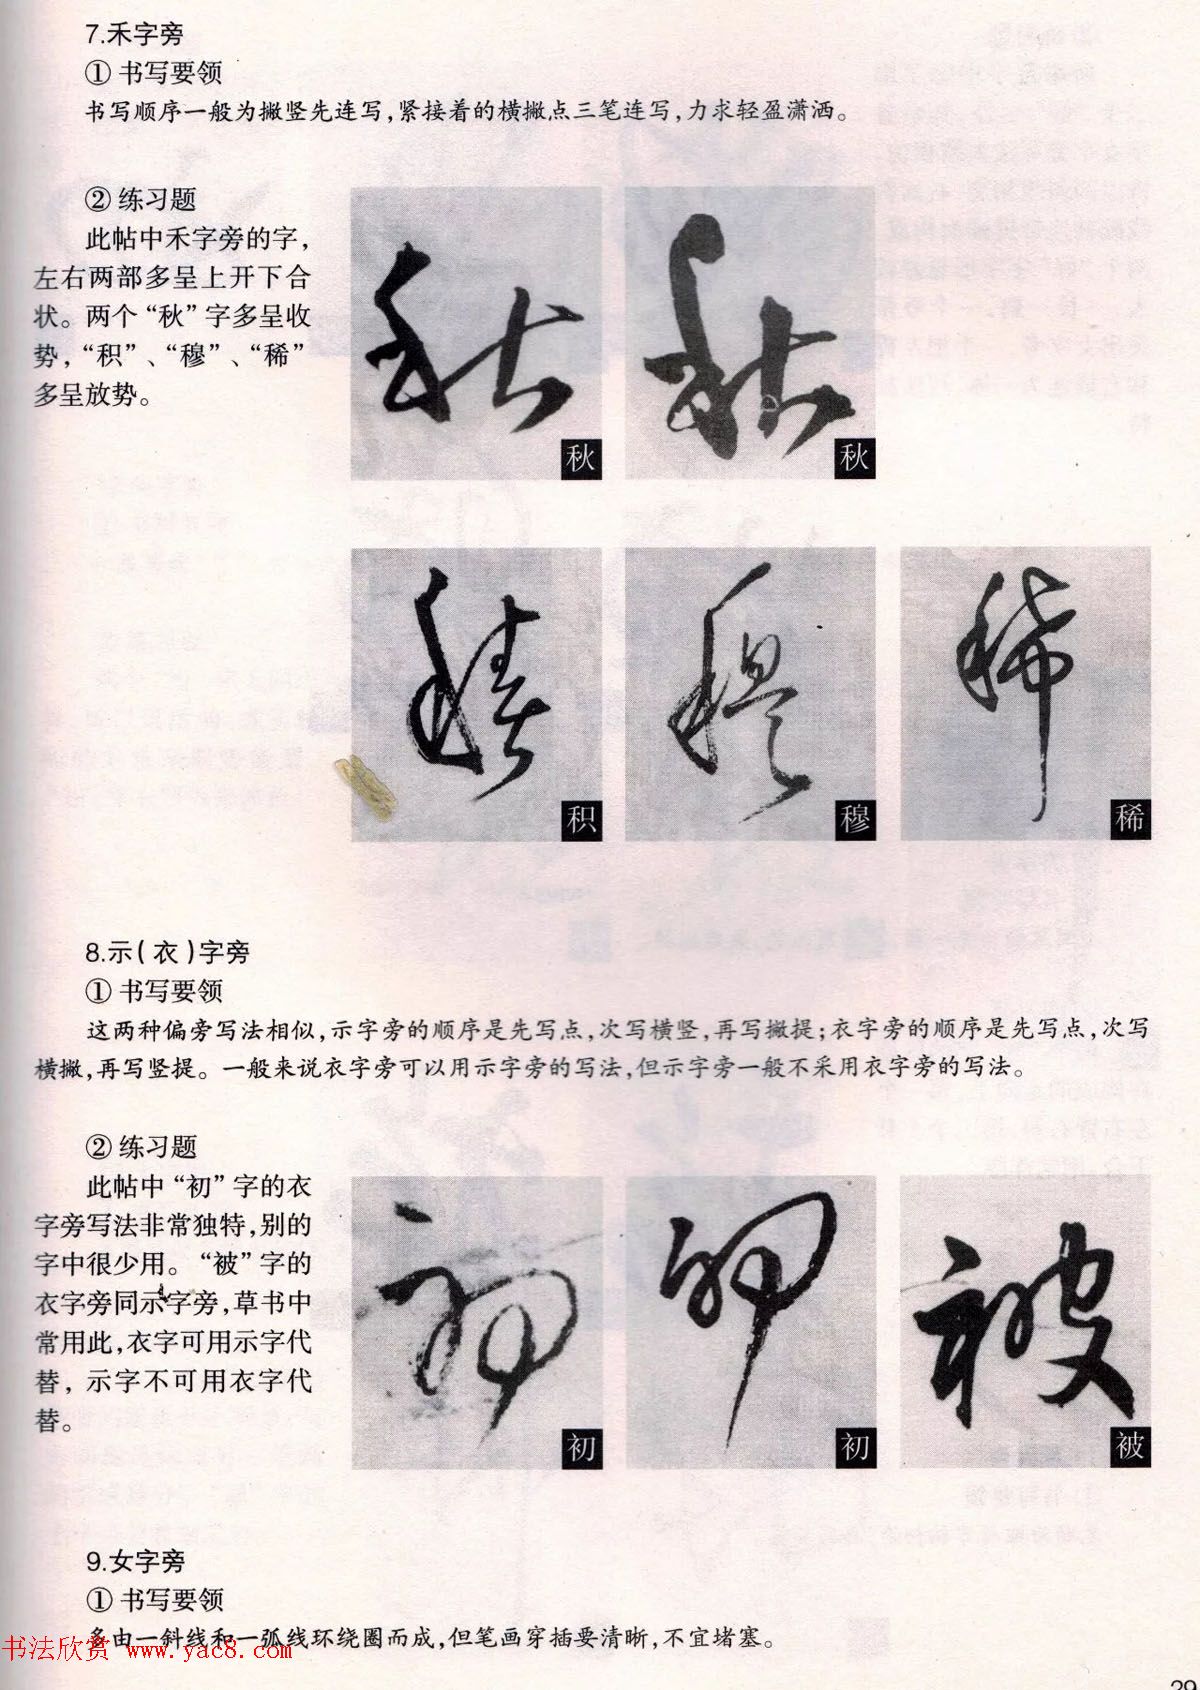 7.禾字旁
① 书写要领
书写顺序一般为撇竖先连写,紧接着的横撇点三笔连写,力求轻盈潇洒。
② 练习题
此帖中禾字旁的字,
左右两部多呈上开下合
状。两个“秋”字多呈收
势,“积”、“穆”、“稀”
多呈放势。
秋
秋
积
穆
稀
8.示(衣)字旁
① 书写要领
这两种偏旁写法相似,示字旁的顺序是先写点,次写横竖,再写撇提;衣字旁的顺序是先写点,次写
横撇,再写竖提。一般来说衣字旁可以用示字旁的写法,但示字旁一般不采用衣字旁的写法。
② 练习题
此帖中“初”字的衣
字旁写法非常独特,别的
字中很少用。“被”字的
衣字旁同示字旁,草书中
常用此,衣字可用示字代
替,示字不可用衣字代
替。
初
初
被
9.女字旁
① 书写要领
多由一斜线和一弧线环绕圈而成,但笔画穿插要清晰,不宜堵塞。
书法欣赏 www.yac8.com
29